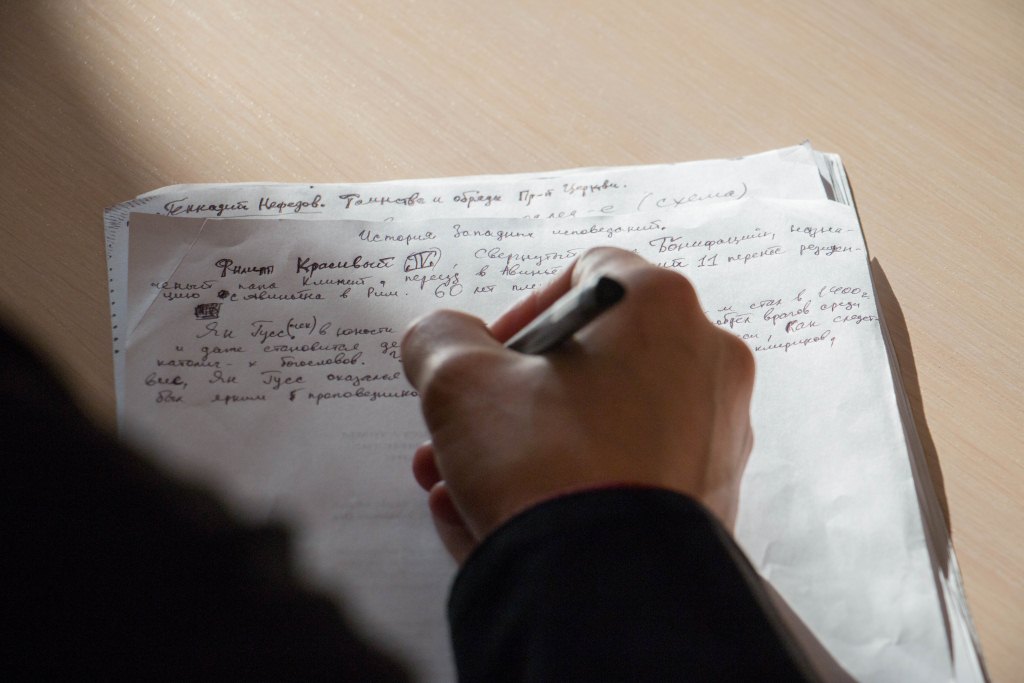 Геннадий Нефедов. Таинства и обряды Пр-й Церкви.
(схема)
История Западных исповеданий.
Филипп Красивый (IV), Свергнутый Бонифаций, назна-
ченый папа Климент, переезд в Авинь 11 перенёс резиден-
цию с Авиньона в Рим. 60 лет пле
Ян Гусс (чех) в юности м стал в 1400г.
и даже становится де врагов среди
католич-х богословов. Как следст-
вие, Ян Гусс оказался клириков,
был ярким проповеднико